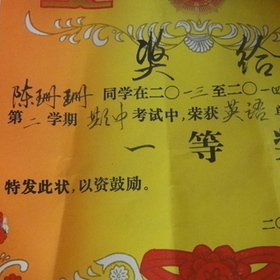 奖给
陈珊珊同学在二〇一三至二〇一四
第二学期期中考试中，荣获英语
一等
特发此状，以资鼓励。
二〇